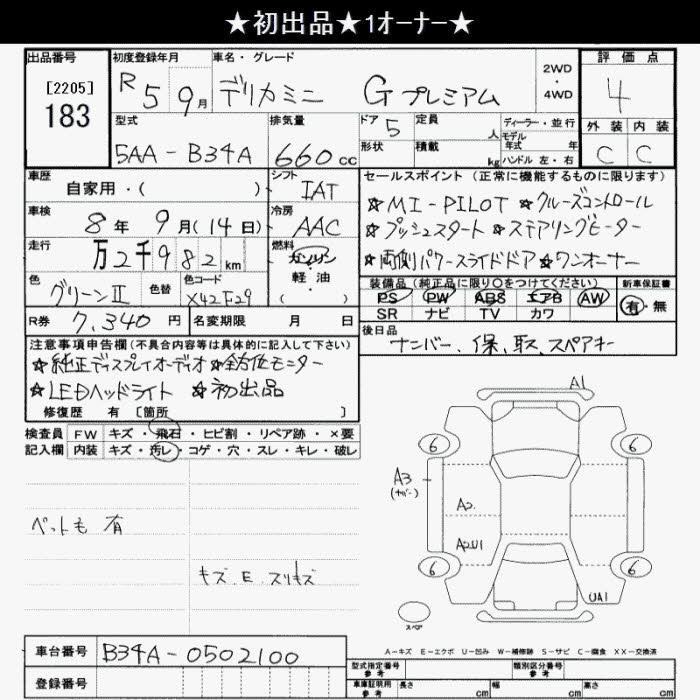 ★初出品★1オーナー★
出品番号 初度登録年月 車名・グレード 2WD・4WD 評価点
[2205] 183 R5 9月 デリカミニ Gプレミアム 4
型式 排気量 ドア 定員 人 ディーラー・並行 外装 内装
5AA-B34A 660cc 5 モデル年式 年 C C
形状 積載 kg ハンドル 左・右
車歴 シフト セールスポイント (正常に機能するものに限ります)
自家用・( ) IAT
★MI-PILOT ★クルーズコントロール
車検 8年 9月(14日) 冷房 AAC
★プッシュスタート ★ステアリングヒーター
走行 万2千982km 燃料 ガソリン・軽油( )
★両側パワースライドドア ★ワンオーナー
色 グリーンⅡ 色替 色コード X42F29
装備品(純正品に限り○をつけてください) 新車保証書
PS PW ABS エアB AW 有・無
SR ナビ TV カワ
R券 7,340円 名変期限 月 日
後日品
ナンバー、保、取、スペアキー
注意事項申告欄(不具合内容等は具体的に記入して下さい)
★純正ディスプレイオーディオ ★全方位モニター
★LEDヘッドライト ★初出品
修復歴 有 [箇所 ]
検査員 FW キズ・飛石・ヒビ割・リペア跡・×要
記入欄 内装 キズ・汚レ・コゲ・穴・スレ・キレ・破レ
ペットも 有
キズ.E.スリキズ
A1
6 6
A3
(ナンバー)
A2
A2U1
6 6
UA1
スペア
A-キズ E-エクボ U-凹み W-補修跡 S-サビ C-腐食 XX-交換済
車台番号 B34A-0502100
登録番号
型式指定番号 参考 類別区分番号 参考
車庫証明用 参考 長さ cm 幅 cm 高さ cm